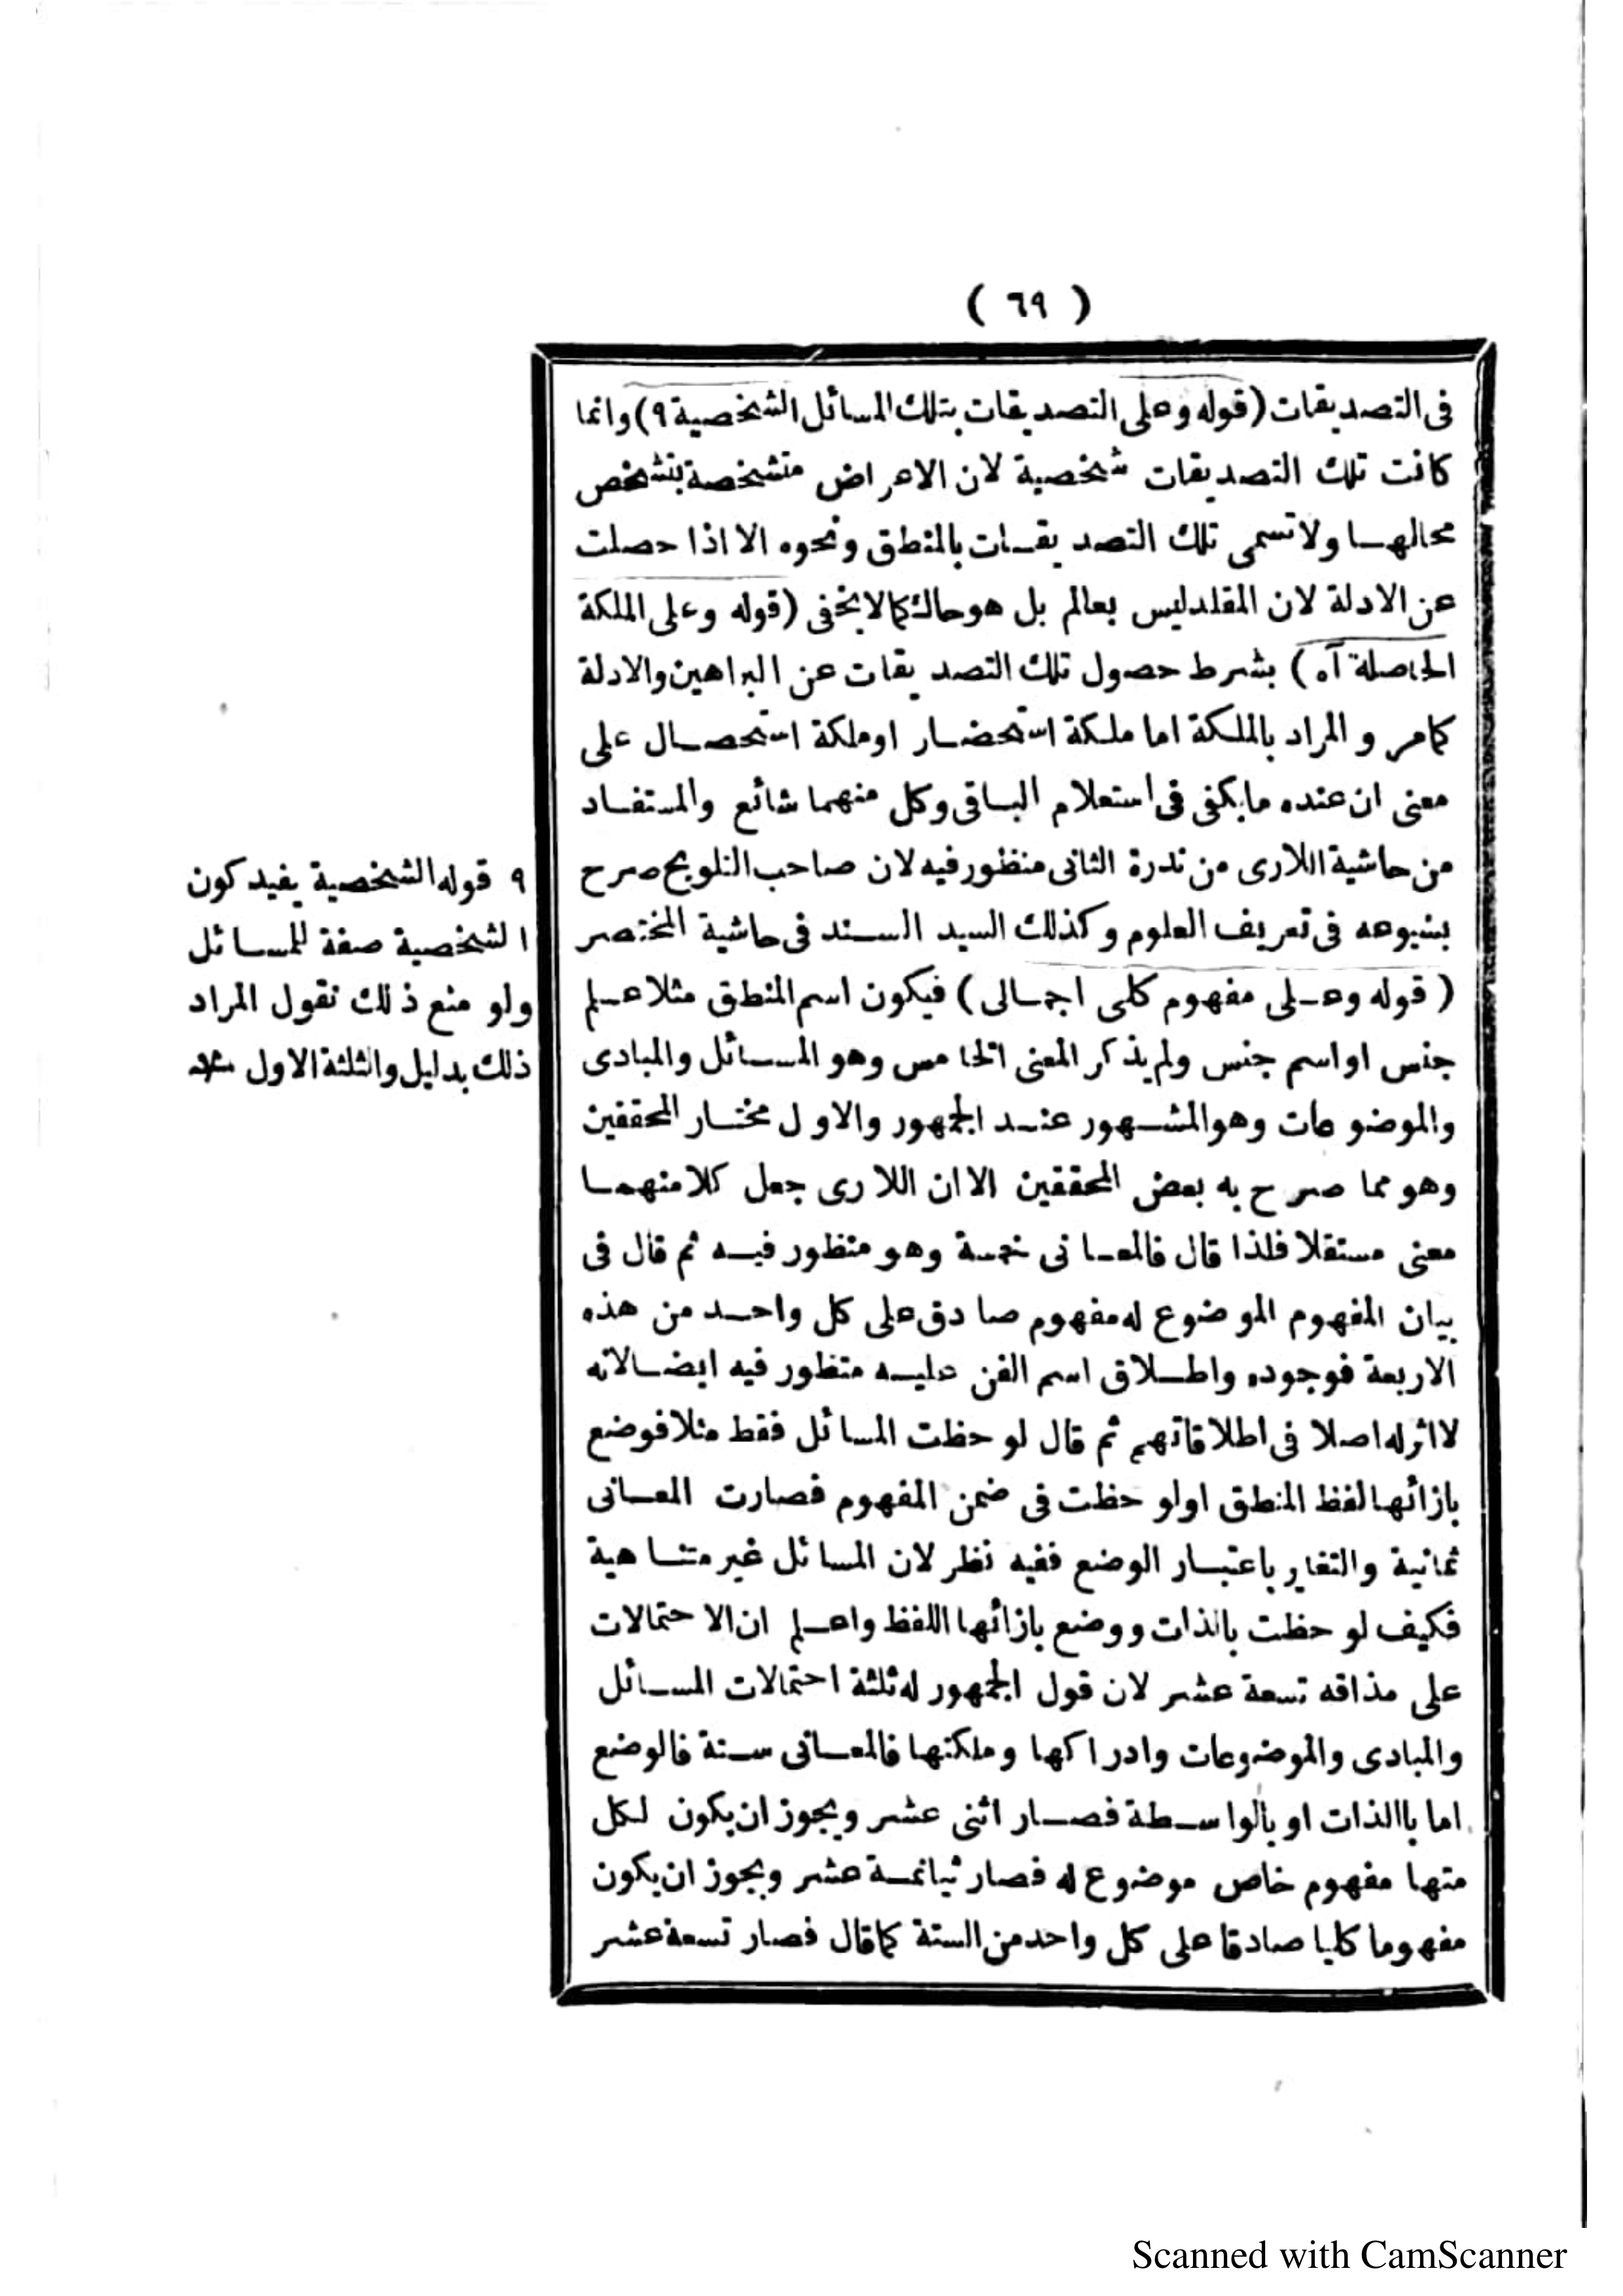 ( ٦٩ )
فى التصديقات (قوله وعلى التصديقات بتلك المسائل الشخصية ٩) وانما
كانت تلك التصديقات شخصية لان الاعراض متشخصة بتشخص
محالها ولا تسمى تلك التصديقات بالمنطق ونحوه الا اذا حصلت
عن الادلة لان المقلد ليس بعالم بل هو حاك كما لا يخفى (قوله وعلى الملكة
الحاصلة آه) بشرط حصول تلك التصديقات عن البراهين والادلة
كما مر والمراد بالملكة اما ملكة استحضار او ملكة استحصال على
معنى ان عنده ما يكفى فى استعلام الباقى وكل منهما شائع والمستفاد
من حاشية اللارى من ندرة الثانى منظور فيه لان صاحب التلويح صرح
بشيوعه فى تعريف العلوم وكذلك السيد السند فى حاشية المختصر
(قوله وعلى مفهوم كلى اجمالى) فيكون اسم المنطق مثلا علم
جنس او اسم جنس ولم يذكر المعنى الخامس وهو المسائل والمبادى
والموضوعات وهو المشهور عند الجمهور والاول مختار المحققين
وهو مما صرح به بعض المحققين الا ان اللارى جعل كلا منهما
معنى مستقلا فلذا قال فالمعانى خمسة وهو منظور فيه ثم قال فى
بيان المفهوم الموضوع له مفهوم صادق على كل واحد من هذه
الاربعة فوجوده واطلاق اسم الفن عليه منظور فيه ايضا لانه
لا اثر له اصلا فى اطلاقاتهم ثم قال لو حظت المسائل فقط مثلا فوضع
بازائها لفظ المنطق او لو حظت فى ضمن المفهوم فصارت المعانى
ثمانية والتغاير باعتبار الوضع ففيه نظر لان المسائل غير متناهية
فكيف لو حظت بالذات ووضع بازائها اللفظ واعلم ان الاحتمالات
على مذاقه تسعة عشر لان قول الجمهور له ثلثة احتمالات المسائل
والمبادى والموضوعات وادراكها وملكتها فالمعانى ستة فالوضع
اما باالذات او بالواسطة فصار اثنى عشر ويجوز ان يكون لكل
منها مفهوم خاص موضوع له فصار ثمانية عشر ويجوز ان يكون
مفهوما كليا صادقا على كل واحد من الستة كما قال فصار تسعة عشر
٩ قوله الشخصية يفيد كون
الشخصية صفة للمسائل
ولو منع ذلك نقول المراد
ذلك بدليل والثلثة الاول
Scanned with CamScanner